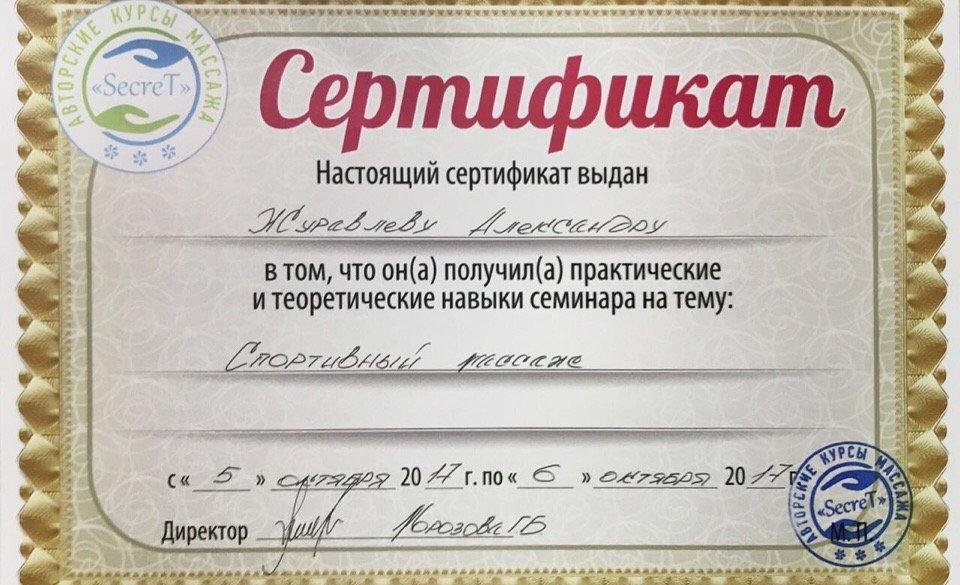 АВТОРСКИЕ КУРСЫ МАССАЖА
«SecreT»
Сертификат
Настоящий сертификат выдан
Журавлеву Александру
в том, что он(а) получил(а) практические
и теоретические навыки семинара на тему:
Спортивный массаж
с « 5 » октября 2017 г. по « 6 » октября 2017 г
Директор Морозова Г Б
АВТОРСКИЕ КУРСЫ МАССАЖА
«SecreT»
М. П